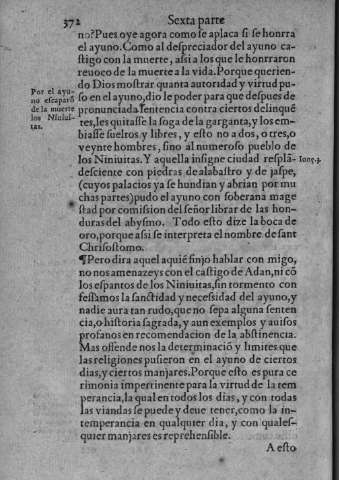 372 Sexta parte
no? Pues oye agora como se aplaca si se honrra
el ayuno. Como al despreciador del ayuno ca-
stigo con la muerte, assi a los que le honrraron
reuoco de la muerte a la vida. Porque querien-
do Dios mostrar quanta autoridad y virtud pu-
so en el ayuno, dio le poder para que despues de
pronunciada sentencia contra ciertos delinquẽ
tes, les quitasse la soga de la garganta, y los em-
biasse sueltos y libres, y esto no a dos, o tres, o
veynte hombres, sino al numeroso pueblo de
los Niniuitas. Y aquella insigne ciudad resplã-
desciente con piedras de alabastro y de jaspe,
(cuyos palacios ya se hundian y abrian por mu
chas partes) pudo el ayuno con soberana mage
stad por comission del señor librar de las hon-
duras del abysmo. Todo esto dize la boca de
oro, porque assi se interpreta el nombre de sant
Chrisostomo.
¶Pero dira aquel a quiẽ finjo hablar con migo,
no nos amenazeys con el castigo de Adan, ni cõ
los espantos de los Niniuitas, sin tormento con
fessamos la sanctidad y necesidad del ayuno, y
nadie aura tan rudo, que no sepa alguna senten
cia, o historia sagrada, y aun exemplos y auisos
profanos en recomendacion de la abstinencia.
Mas offende nos la determinaciõ y limites que
las religiones pusieron en el ayuno de ciertos
dias, y ciertos manjares. Porque esto es pura ce
rimonia impertinente para la virtud de la tem
perancia, la qual en todos los dias, y con todas
las viandas se puede y deue tener, como la in-
temperancia en qualquier dia, y con quales-
quier manjares es reprehensible.
A esto
Por el ayu-
no escaparõ
de la muerte
los Niniui-
tas.
Ionę. 3.